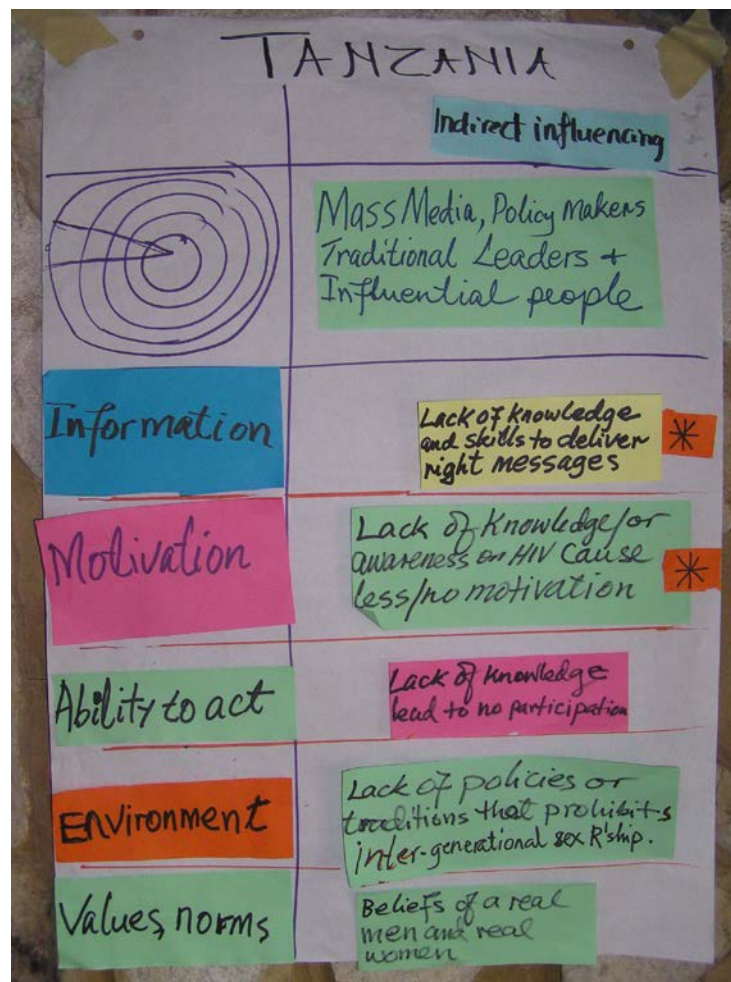 TANZANIA
Indirect influencing
Mass Media, Policy Makers
Traditional Leaders +
Influential people
Information
Lack of knowledge
and skills to deliver
right messages
*
Motivation
Lack of Knowledge/or
awareness on HIV cause
less/no motivation
*
Ability to act
Lack of knowledge
lead to no participation
Environment
Lack of policies or
traditions that prohibit-s
inter-generational sex R'ship.
Values, norms
Beliefs of a real
men and real
women